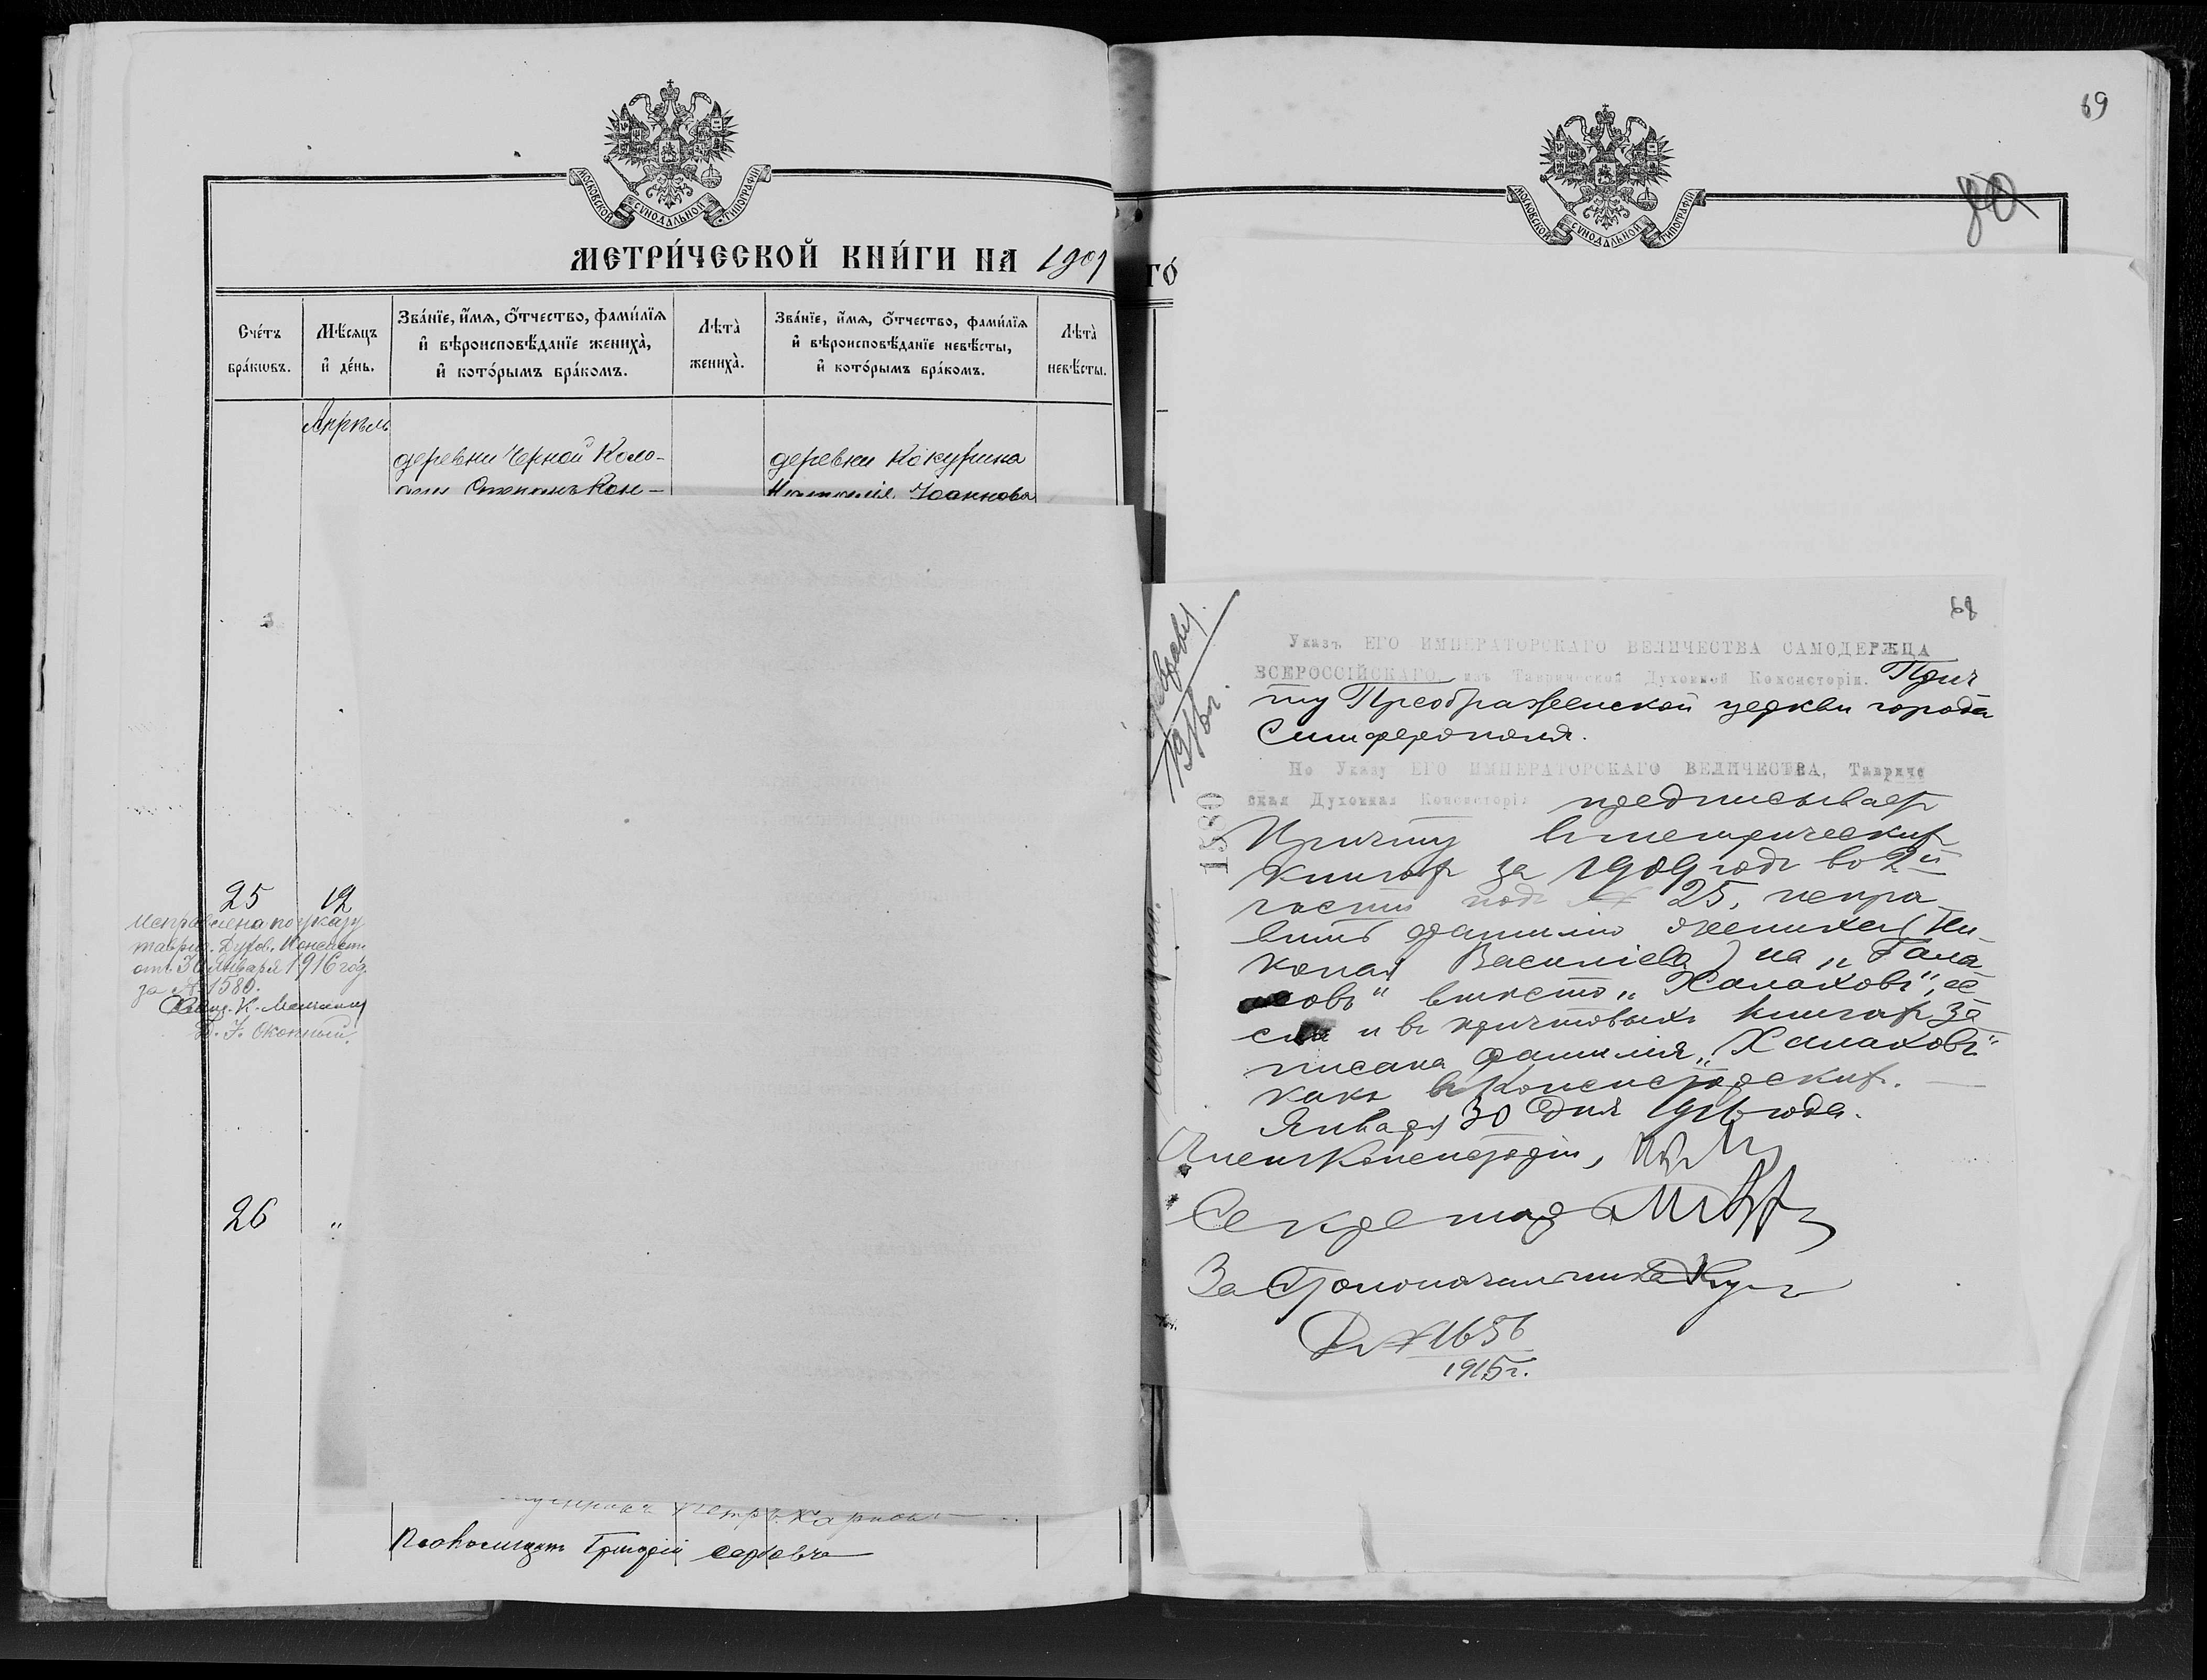 МОСКОВСКОЙ СѴНОДАЛЬНОЙ ТИПОГРАФІИ
МЕТРИ́ЧЕСКОЙ КНИ́ГИ НА 1909
Сче́тъ бра́кωвъ.
Мѣ́сяцъ и҆ де́нь.
Зва́нїе, и҆́мѧ, ѻ҆́тчество, фами́лїѧ
и҆ вѣроисповѣ́данїе жениха̀,
и҆ кото́рымъ бра́комъ.
Лѣта̀ жениха̀.
Зва́нїе, и҆́мѧ, ѻ҆́тчество, фами́лїѧ
и҆ вѣроисповѣ́данїе невѣ́сты,
и҆ кото́рымъ бра́комъ.
Лѣта̀ невѣ́сты.
Апрѣль
деревни Черной Коло-
Степанъ Кон-
деревни Кокурина
Наталія Іоаннова
25 12
Исправлена по указу
таврич. Духов. Консист.
отъ 30 Января 1916 год.
за № 1580.
Свящ. К.
26 "
Петръ Карпов
Псаломщикъ Григорій
69
МОСКОВСКОЙ СѴНОДАЛЬНОЙ ТИПОГРАФІИ
ГО́
68
Указъ ЕГО ИМПЕРАТОРСКАГО ВЕЛИЧЕСТВА САМОДЕРЖЦА
ВСЕРОССІЙСКАГО, изъ Таврической Духовной Консисторіи. Прич
ту Преображенской церкви города
Симферополя.
По Указу ЕГО ИМПЕРАТОРСКАГО ВЕЛИЧЕСТВА, Тавриче
ская Духовная Консисторія предписываетъ
1580
Причту в метрическихъ
книгахъ за 1909 годъ во 2й
части подъ № 25, испра-
вить фамилію жениха (Ни-
колая Васильева) на „Гала
ховъ" вмѣсто „Халаховъ", е
сли и въ причтовыхъ книгахъ за
писана фамилія „Халаховъ"
какъ въ Консисторскихъ.
Января 30 дня 1916 года.
Членъ Консисторіи,
Секретарь
За Столоначальника
Д. № 1656
1915 г.